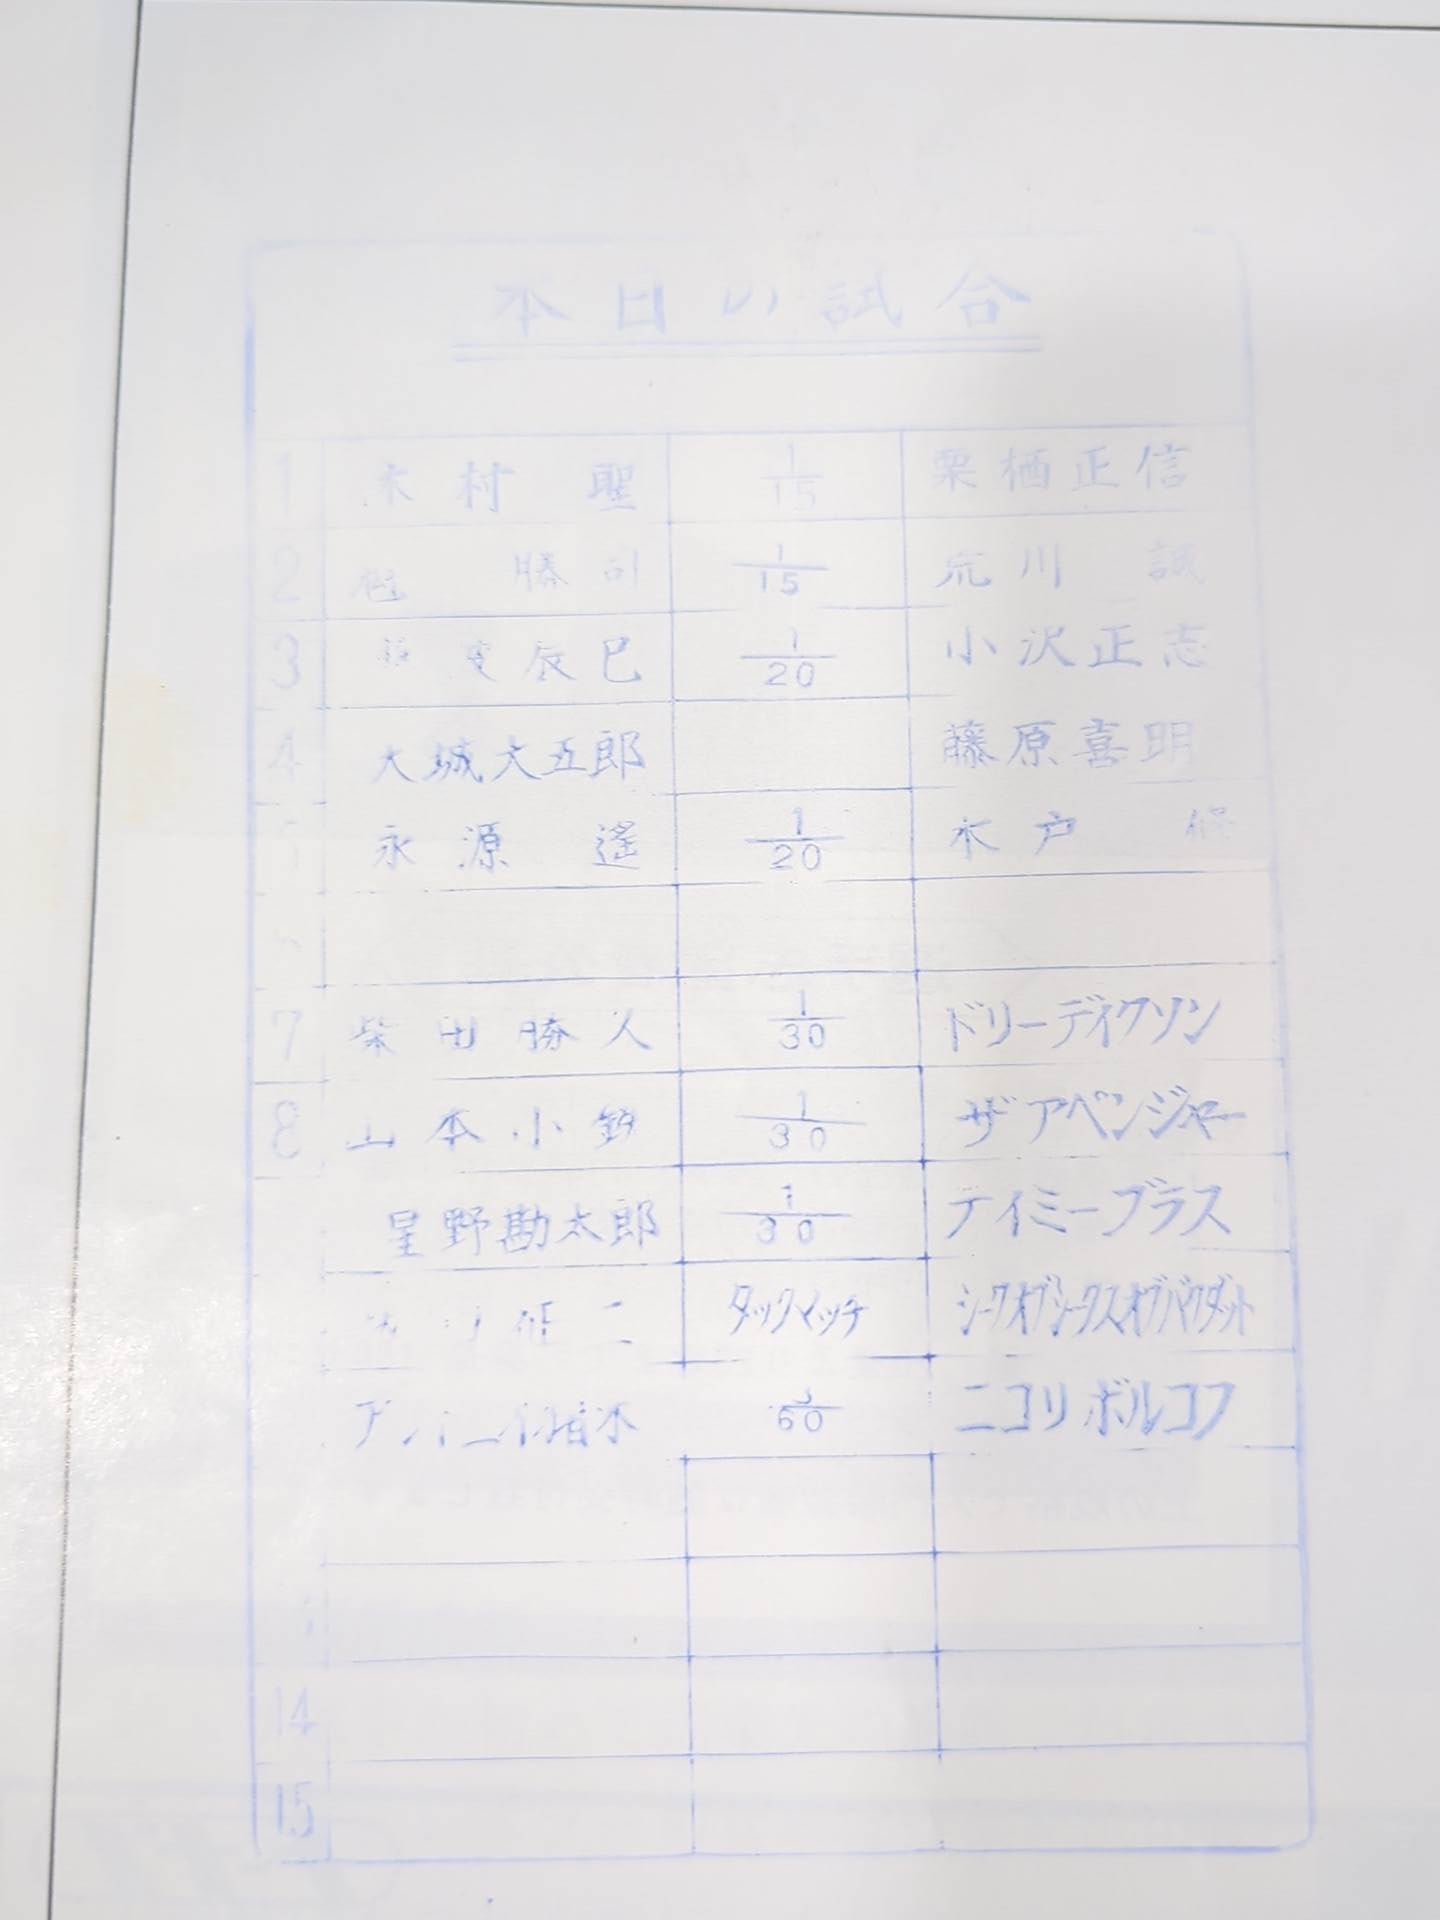 本日の試合
1 木村 聖 1/15 栗栖正信
2 勝司 1/15 荒川 誠
3 辰巳 1/20 小沢正志
4 大城大五郎 藤原喜明
永源 遙 1/20 木戸 修
7 柴田勝久 1/30 ドリーデイクソン
8 山本小鉄 1/30 ザアベンジャー
星野勘太郎 1/30 テイミーブラス
二 タックマッチ シークオブシークスオブバクダット
アントニオ猪木 3/60 ニコリボルコフ
14
15